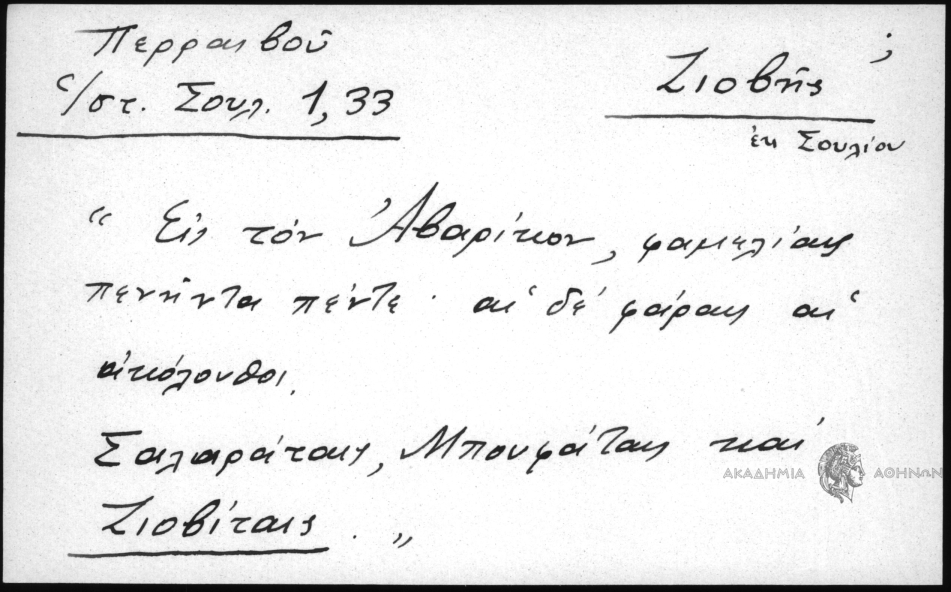 Περραιβοῦ
Ἱστ. Σουλ. 1,33
Ζιοβῆς ;
ἐκ Σουλίου
“ Εἰς τὸν Ἀβαρίκον, φαμελίαις
πενῆντα πέντε · αἱ δέ φάραις αἱ
ἀκόλουθοι.
Σαλαράταις, Μπουφάταις καί
Ζιοβίταις . „
ΑΚΑΔΗΜΙΑ ΑΘΗΝΩΝ